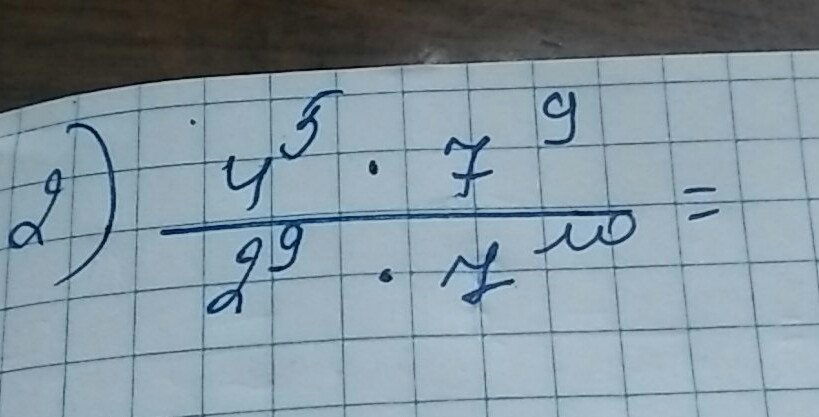 2) 4⁵ · 7⁹
2⁹ · 7¹⁰ =